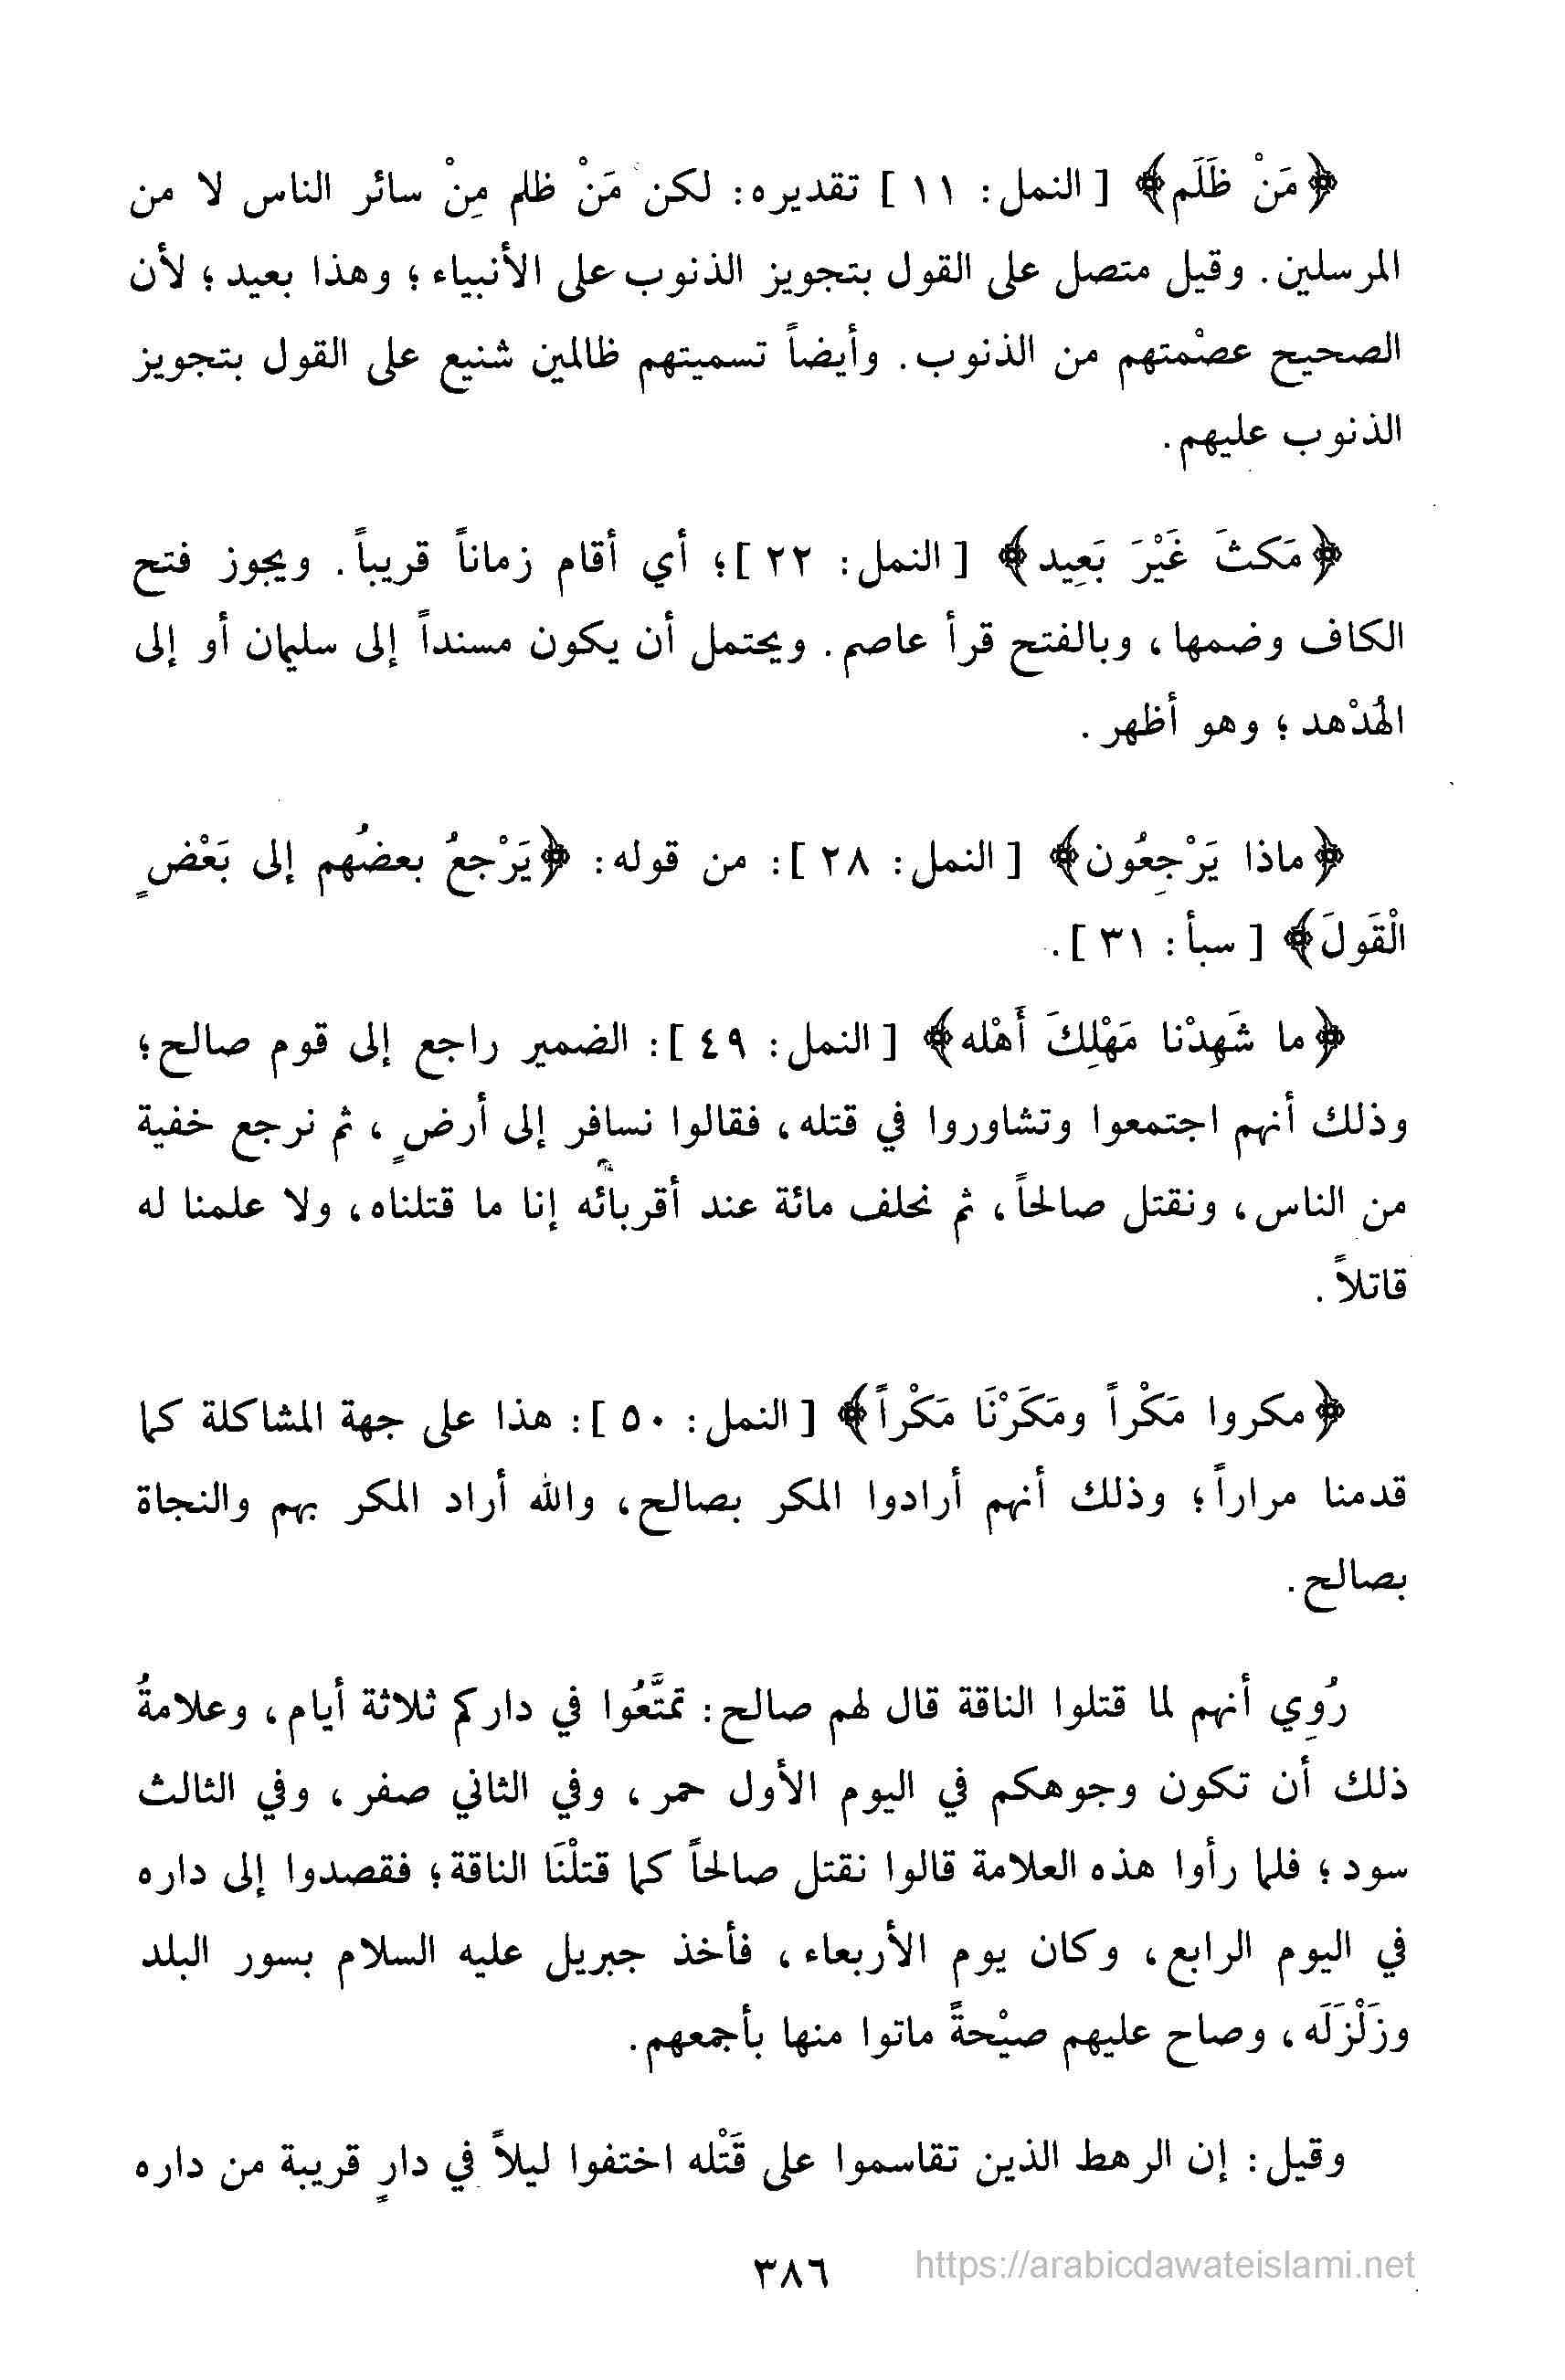 ﴿مَنْ ظَلَم﴾ [ النمل: ١١ ] تقديره: لكن مَنْ ظلم مِنْ سائر الناس لا من
المرسلين. وقيل متصل على القول بتجويز الذنوب على الأنبياء؛ وهذا بعيد؛ لأن
الصحيح عصْمتهم من الذنوب. وأيضاً تسميتهم ظالمين شنيع على القول بتجويز
الذنوب عليهم.
﴿مَكثَ غَيْرَ بَعِيد﴾ [ النمل: ٢٢ ]؛ أي أقام زماناً قريباً. ويجوز فتح
الكاف وضمها، وبالفتح قرأ عاصم. ويحتمل أن يكون مسنداً إلى سليمان أو إلى
الهُدْهد؛ وهو أظهر.
﴿ماذا يَرْجِعُون﴾ [ النمل: ٢٨ ]: من قوله: ﴿يَرْجعُ بعضُهم إلى بَعْضٍ
الْقَولَ﴾ [ سبأ: ٣١ ].
﴿ما شَهِدْنا مَهْلِكَ أَهْله﴾ [ النمل: ٤٩ ]: الضمير راجع إلى قوم صالح؛
وذلك أنهم اجتمعوا وتشاوروا في قتله، فقالوا نسافر إلى أرضٍ، ثم نرجع خفية
من الناس، ونقتل صالحاً، ثم نحلف مائة عند أقربائه إنا ما قتلناه، ولا علمنا له
قاتلاً.
﴿مكروا مَكْراً ومَكَرْنَا مَكْراً﴾ [ النمل: ٥٠ ]: هذا على جهة المشاكلة كما
قدمنا مراراً؛ وذلك أنهم أرادوا المكر بصالح، والله أراد المكر بهم والنجاة
بصالح.
رُوِي أنهم لما قتلوا الناقة قال لهم صالح: تمتَّعُوا في داركم ثلاثة أيام، وعلامةُ
ذلك أن تكون وجوهكم في اليوم الأول حمر، وفي الثاني صفر، وفي الثالث
سود؛ فلما رأوا هذه العلامة قالوا نقتل صالحاً كما قتلْنَا الناقة؛ فقصدوا إلى داره
في اليوم الرابع، وكان يوم الأربعاء، فأخذ جبريل عليه السلام بسور البلد
وزَلْزَلَه، وصاح عليهم صيْحةً ماتوا منها بأجمعهم.
وقيل: إن الرهط الذين تقاسموا على قَتْله اختفوا ليلاً في دارٍ قريبة من داره
٣٨٦
https://arabicdawateislami.net